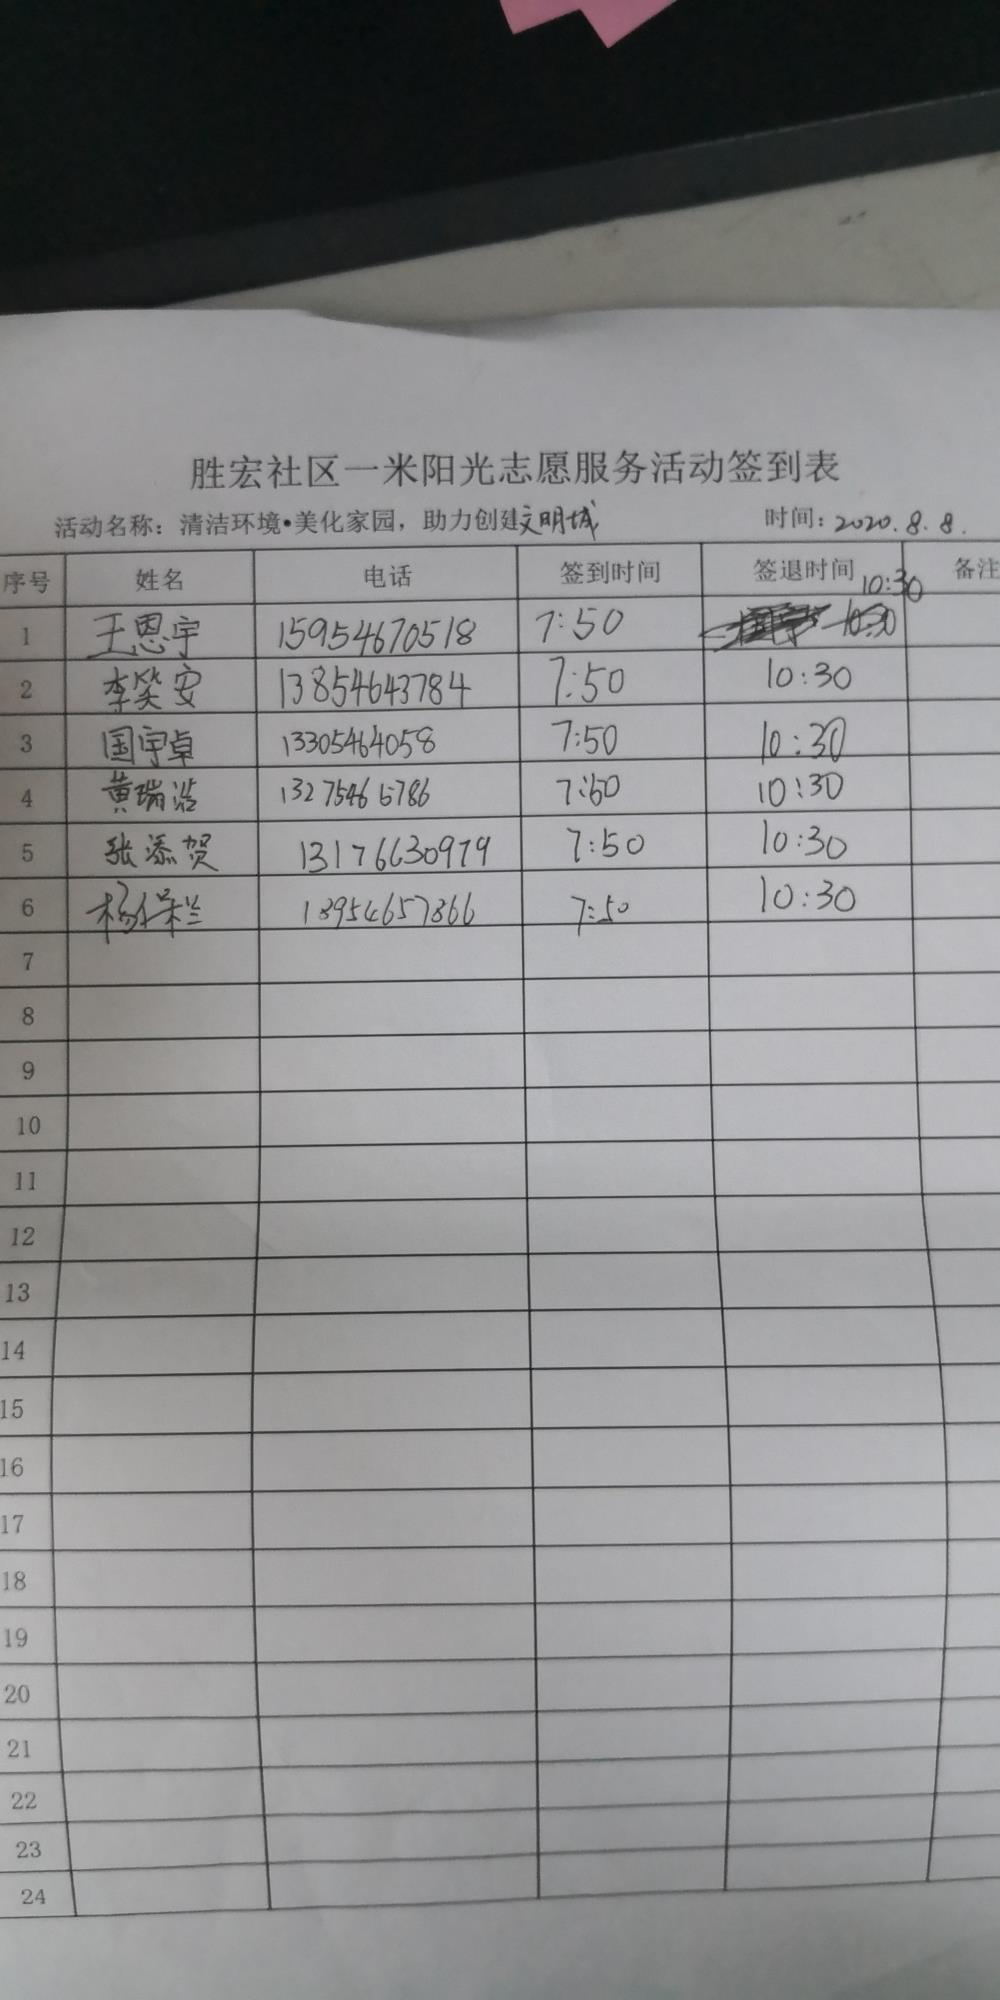 胜宏社区一米阳光志愿服务活动签到表
活动名称：清洁环境•美化家园，助力创建文明城 时间：2020.8.8.
序号 姓名 电话 签到时间 签退时间 备注
10:30
1 王恩宇 15954670518 7:50
2 李笑安 13854643784 7:50 10:30
3 国宇卓 13305464058 7:50 10:30
4 黄瑞浩 13275465786 7:50 10:30
5 张添贺 13176630979 7:50 10:30
6 杨保兰 13954657366 7:50 10:30
7
8
9
10
11
12
13
14
15
16
17
18
19
20
21
22
23
24